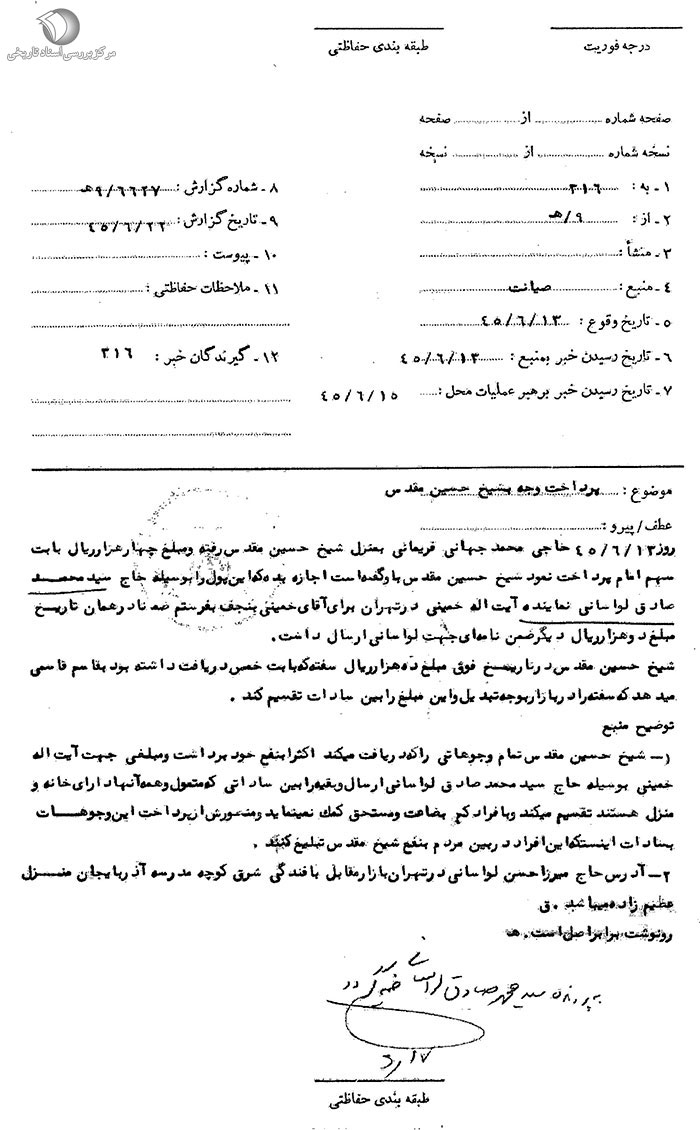 مرکز بررسی اسناد تاریخی
درجه فوریت
طبقه بندی حفاظتی
صفحه شماره از صفحه
نسخه شماره از نسخه
۱ـ به : ۳۱۶
۲ـ از : ۹/هـ
۳ـ منشأ :
۴ـ منبع : صیانت
۵ـ تاریخ وقوع : ۴۵/۶/۱۳
۶ـ تاریخ رسیدن خبر بمنبع : ۴۵/۶/۱۳
۷ـ تاریخ رسیدن خبر برهبر عملیات محل : ۴۵/۶/۱۵
۸ـ شماره گزارش : ۹/۶۶۲۷هـ
۹ـ تاریخ گزارش : ۴۵/۶/۲۲
۱۰ـ پیوست :
۱۱ـ ملاحظات حفاظتی :
۱۲ـ گیرندگان خبر : ۳۱۶
موضوع : پرداخت وجه بشیخ حسین مقدس
عطف/ پیرو :
روز ۴۵/۶/۱۳ حاجی محمد جهانی قریعانی بمنزل شیخ حسین مقدس رفته ومبلغ چهارهزارریال بابت
سهم امام پرداخت نمود شیخ حسین مقدس باوگفته است اجازه بده که این پول را بوسیله حاج سید محمد
صادق لواسانی نماینده آیت اله خمینی درتهران برای آقای خمینی بنجف بفرستم ضمنا درهمان تاریخ
مبلغ دوهزارریال دیگرضمن نامه‌ای جهت لواسانی ارسال داشت.
شیخ حسین مقدس درتاریخ فوق مبلغ ده هزارریال سفته که بابت خمس دریافت داشته بود بقاسم قاسمی
میدهد که سفته را دربازار بوجه تبدیل واین مبلغ را بین سادات تقسیم کند .
توضیح منبع
۱ـ شیخ حسین مقدس تمام وجوهاتی راکه دریافت میکند اکثرا بنفع خود برداشت ومبلغی جهت آیت اله
خمینی بوسیله حاج سید محمد صادق لواسانی ارسال وبقیه را بین ساداتی که متمول وهمه آنها دارای خانه و
منزل هستند تقسیم میکند وبافراد کم بضاعت ومستحق کمک نمینماید ومنظورش از پرداخت این وجوهات
بسادات اینستکه این افراد دربین مردم بنفع شیخ مقدس تبلیغ کنند .
۲ـ آدرس حاج میرزا حسن لواسانی درتهران بازار مقابل بافندگی شرق کوچه مدرسه آذربایجان منزل
عظیم زاده میباشد . ق
رونوشت برابر اصل است . هـ
به پرونده سید محمد صادق لواسانی ضمیمه گردد
طبقه بندی حفاظتی